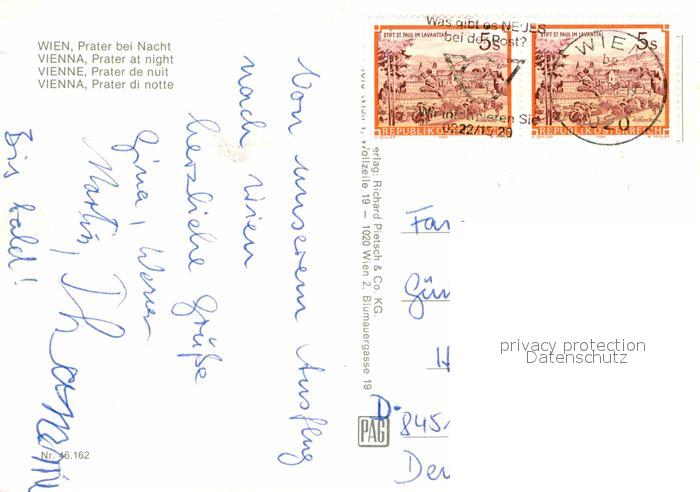 WIEN, Prater bei Nacht
VIENNA, Prater at night
VIENNE, Prater de nuit
VIENNA, Prater di notte
Von unserem Ausflug
nach Wien
herzliche Grüße
Gina, Werner
Martin,
Bis bald!
Nr. 46.162
Verlag: Richard Pietsch & Co. KG.
Wollzeile 19 – 1020 Wien 2, Blumauergasse 19
PAG
STIFT ST. PAUL IM LAVANTTAL
5s
REPUBLIK ÖSTERREICH
STIFT ST. PAUL IM LAVANTTAL
5s
REPUBLIK ÖSTERREICH
Was gibt es NEUES
bei der Post?
Wir informieren Sie
0222/15 20
WIEN
Fa
Gün
H
D-
845
De
privacy protection
Datenschutz